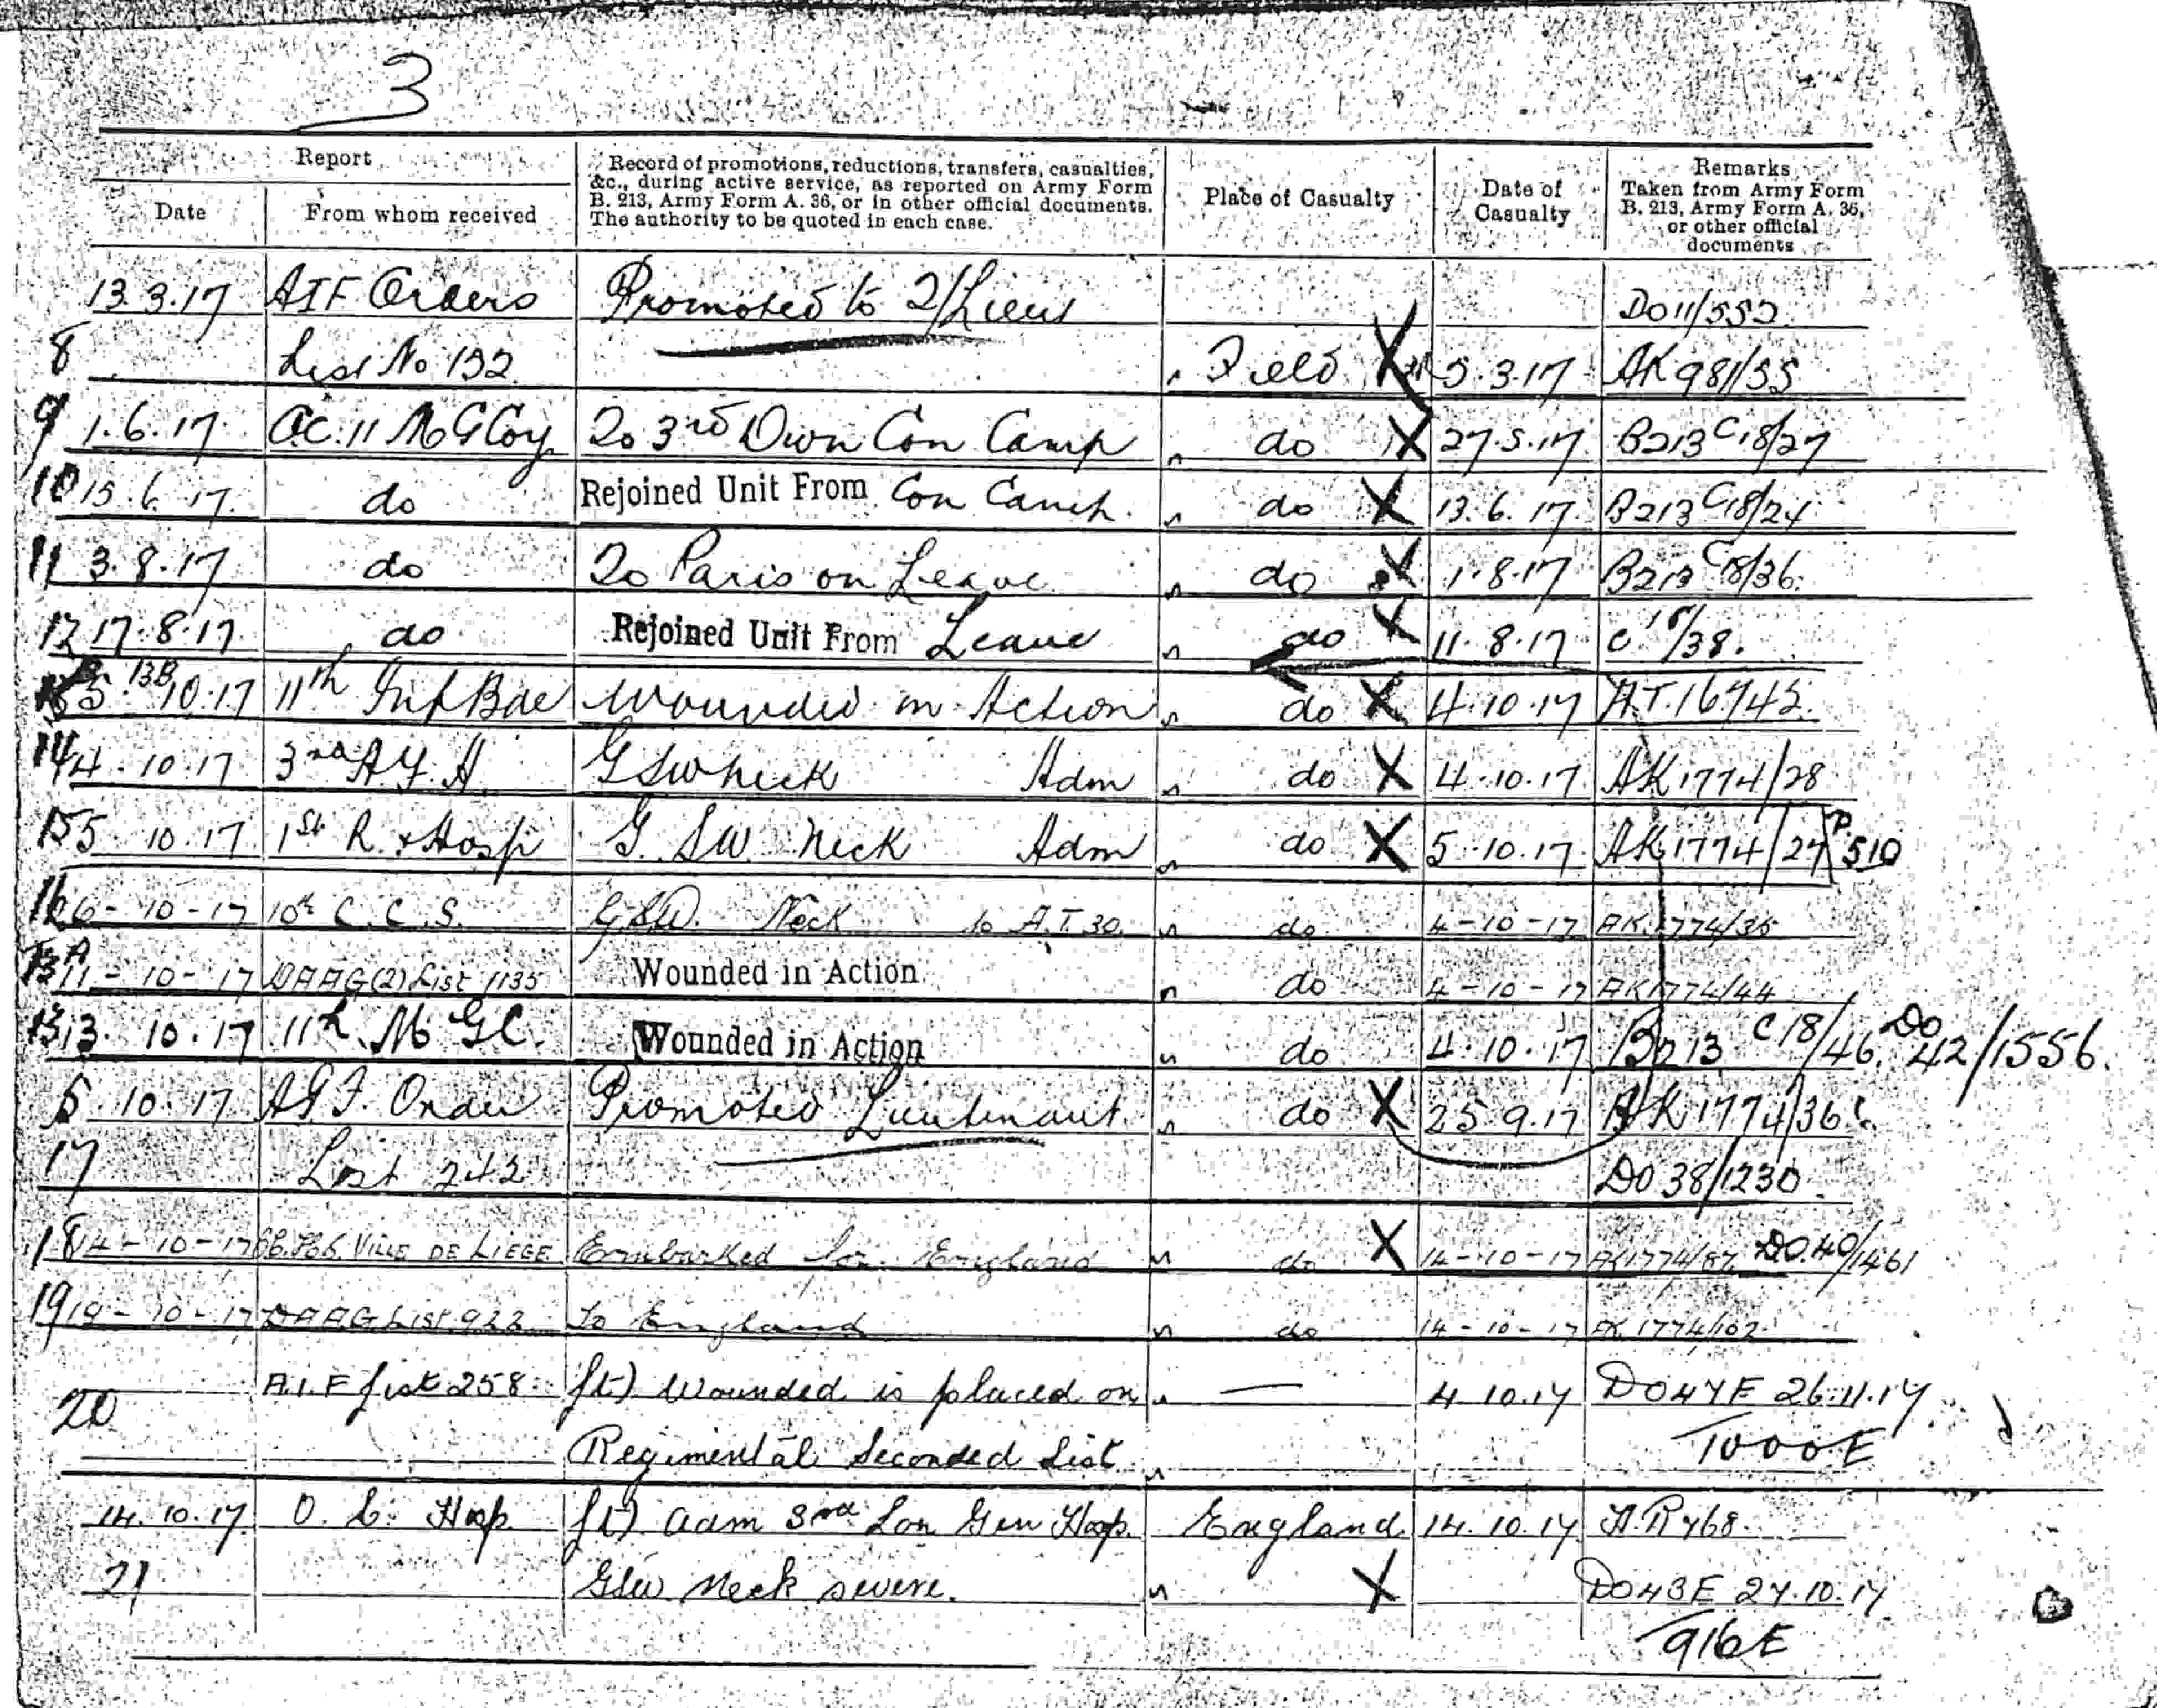 3
Report
Date
From whom received
Record of promotions, reductions, transfers, casualties,
&c., during active service, as reported on Army Form
B. 213, Army Form A. 36, or in other official documents.
The authority to be quoted in each case.
Place of Casualty
Date of
Casualty
Remarks
Taken from Army Form
B. 213, Army Form A. 36,
or other official
documents
13.3.17 AIF Orders Promoted to 2/Lieut DO 11/552
8 List No 132 Field X 5.3.17 AK 981/55
9 1.6.17 O.C. 11 M G Coy To 3rd Divn Con Camp do X 27.5.17 B213 C18/27
10 15.6.17 do Rejoined Unit From Con Camp. do X 13.6.17 B213 C18/24
11 3.8.17 do To Paris on Leave do X 1.8.17 B213 C18/36.
12 17.8.17 do Rejoined Unit From Leave do X 11.8.17 C18/38.
13B 5.10.17 11th Inf Bde Wounded in Action do X 4.10.17 A.T. 16745.
14 4.10.17 3rd A F A GSW Neck Adm do X 4.10.17 AK 1774/28
15 5.10.17 1st R. & Hosp G.S.W. Neck Adm do X 5.10.17 AK 1774/27 P.510
16 6-10-17 10th C.C.S. G.S.W. Neck to A.T.30. do 4-10-17 AK.1774/35
13A 11-10-17 DAAG(2) List 1135 Wounded in Action do 4-10-17 AK 1774/44
13 13.10.17 11th M G C. Wounded in Action do 4.10.17 B213 C18/46. DO 42/1556.
5.10.17 A.I.F. Order Promoted Lieutenant do X 25.9.17 AK 1774/36
17 List 242 DO 38/1230
18 14-10-17 VILLE DE LIEGE Embarked for England do X 14-10-17 AK1774/87 DO.40/1461
19 19-10-17 DAAG List 922 To England do 14-10-17 AK 1774/102
A.I.F List 258. (Lt) Wounded is placed on — 4.10.17 DO 47E 26.11.17
20 Regimental Seconded List. 1000E
14.10.17 O. C. Hosp. (Lt) Adm 3rd Lon Gen Hosp. England 14.10.17 H.R 768.
21 GSW Neck severe. X DO 43E 27.10.17
916E